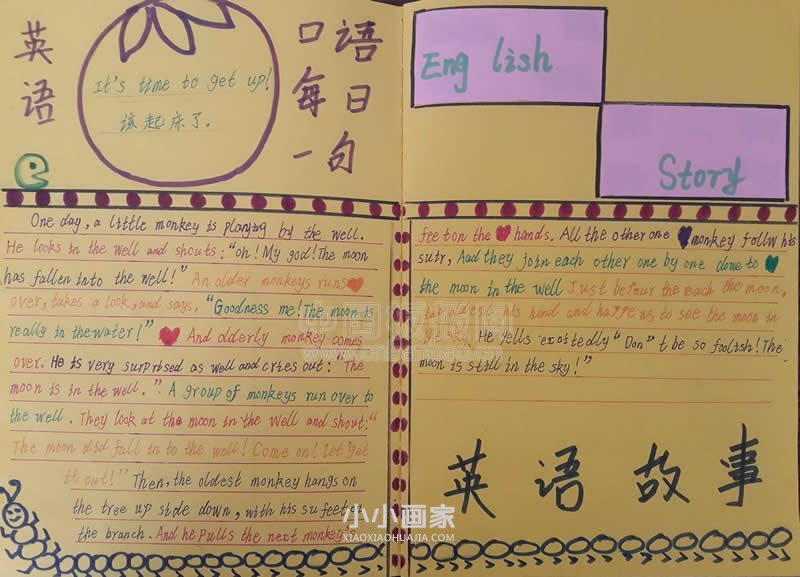 英语
It's time to get up!
该起床了。
口语
每日
一句
One day, a little monkey is playing by the well.
He looks in the well and shouts: "oh! My god! The moon
has fallen into the well!" An older monkeys runs
over, takes a look, and says, "Goodness me! The moon is
really in the water!" And olderly monkey comes
over. He is very surprised as well and cries out: "The
moon is in the well." A group of monkeys run over to
the well. They look at the moon in the well and shout:"
The moon did fall in to the well! Come on! Let get
it out!" Then, the oldest monkey hangs on
the tree up side down, with his su feet on
the branch. And he pulls the next monkey's
English
Story
feet on the hands. All the other one monkey follw his
sutr, And they join each other one by one dowe to
the moon in the well Just before the each the moon,
the oldest his head and happens to see the moon in
He yells excitedly "Don" t be so foolish! The
moon is still in the sky!"
英语故事
小小画家
XIAOXIAOHUAJIA.COM